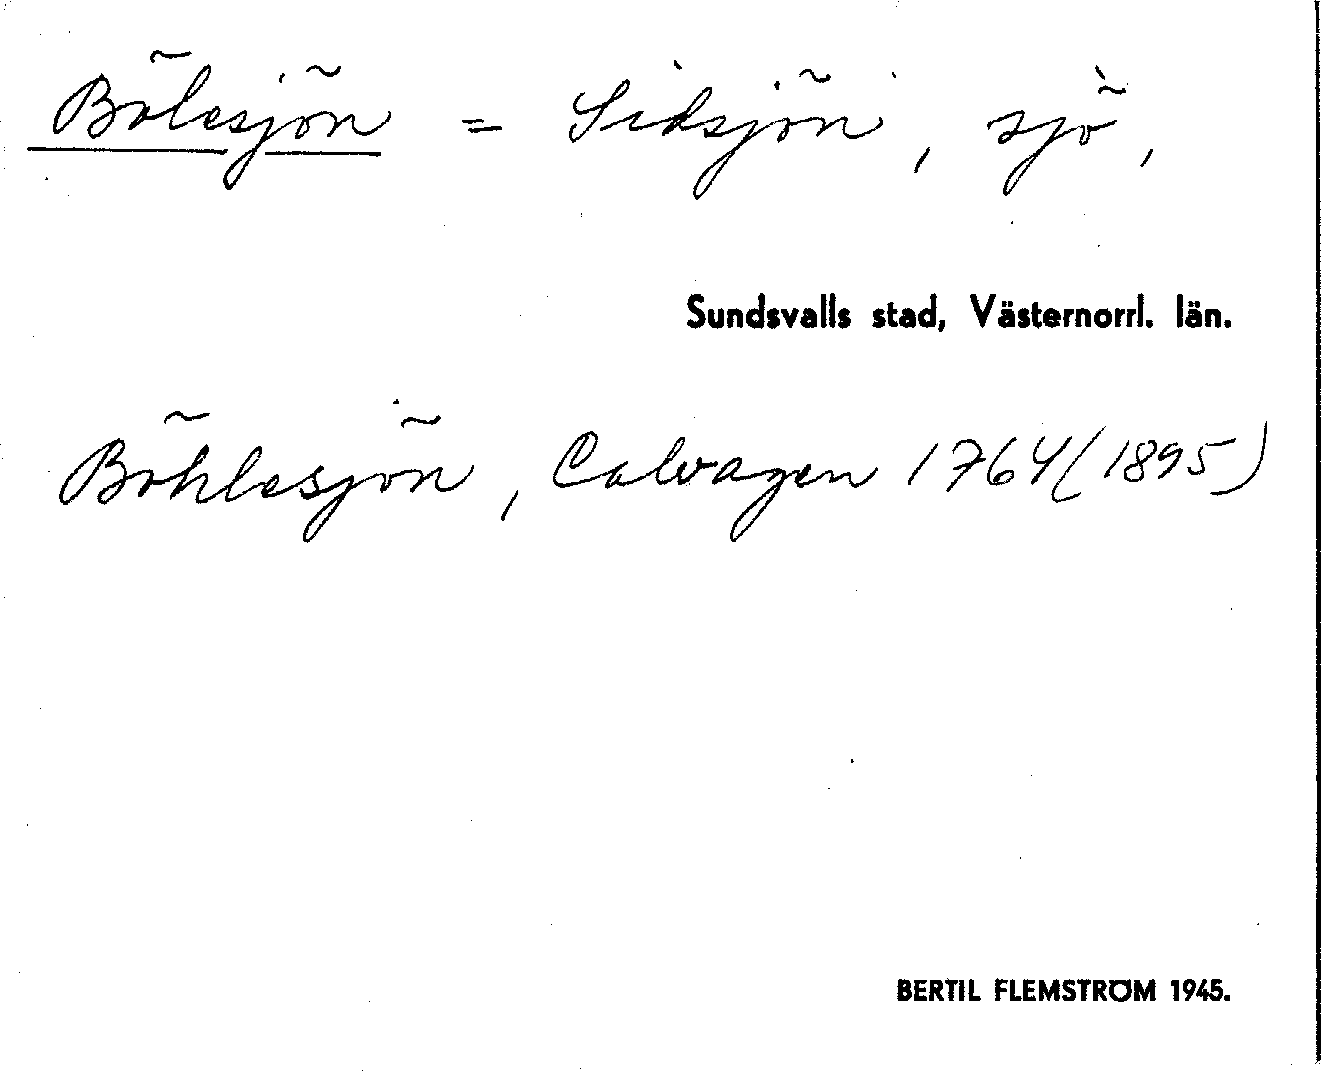 Bölesjön = Sidsjön, sjö,
Sundsvalls stad, Västernorrl. län.
Böhlesjön, Calvagen 1764 (1895)
BERTIL FLEMSTRÖM 1945.